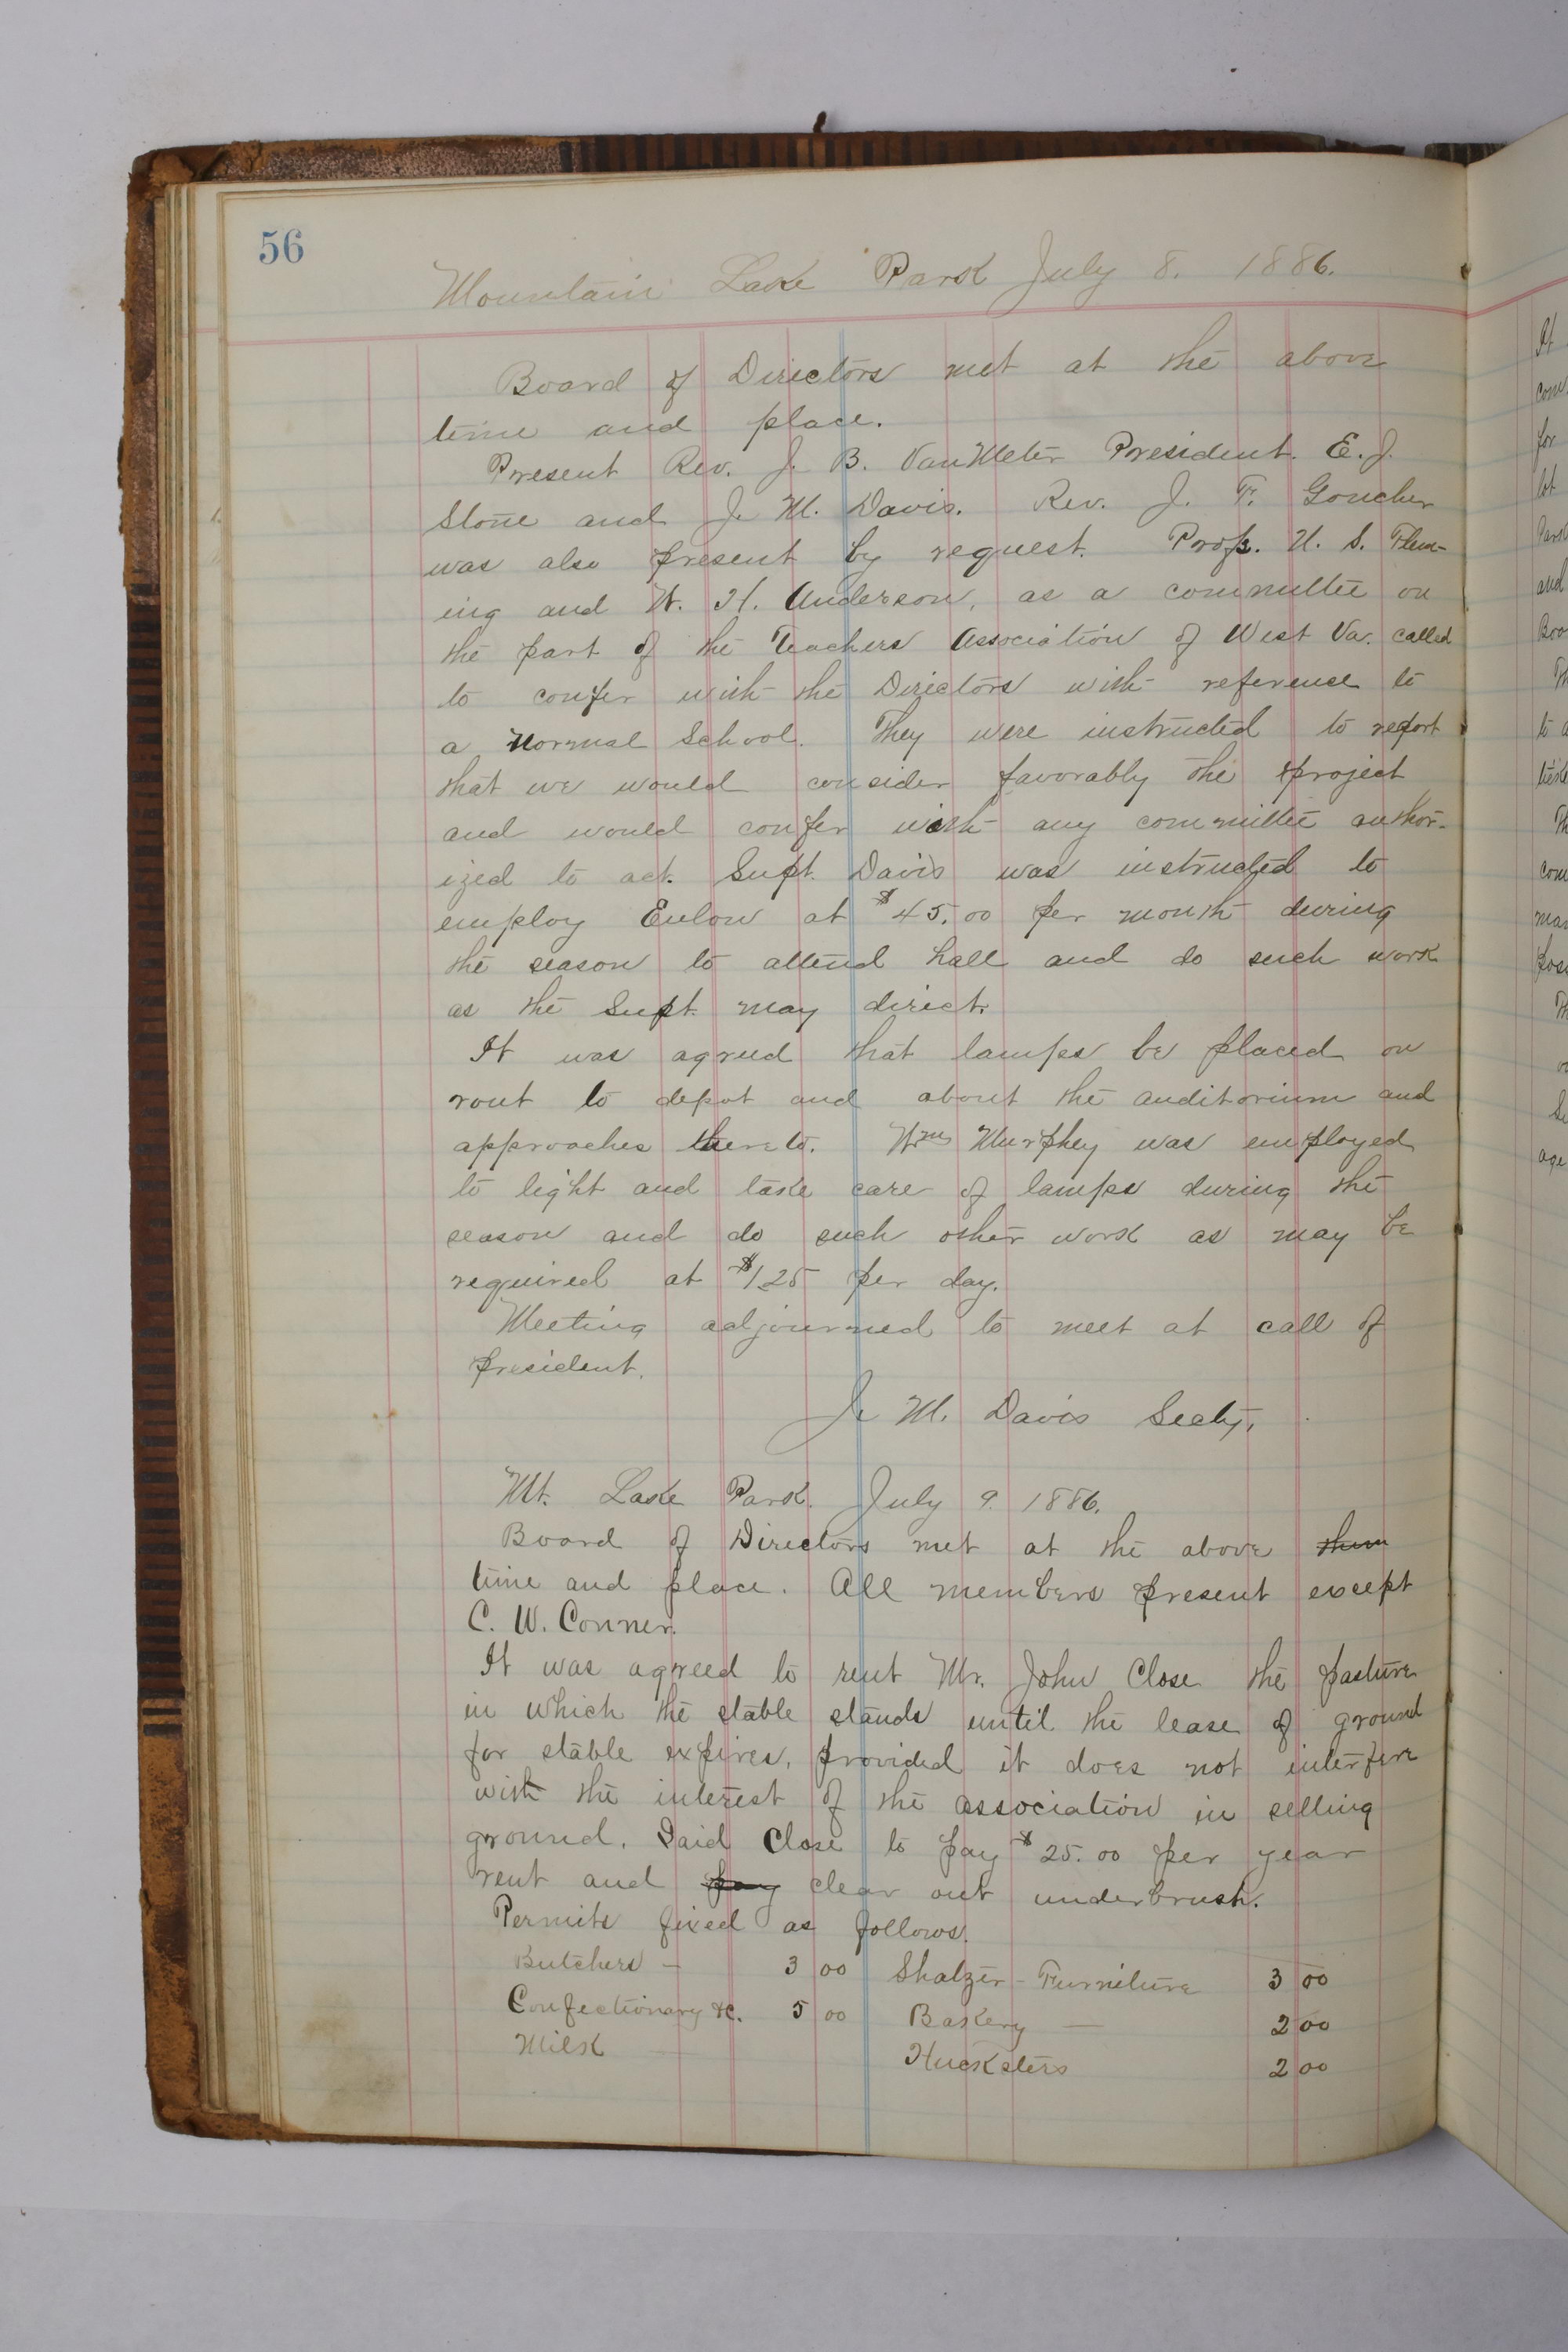 56
Mountain Lake Park July 8. 1886.
Board of Directors met at the above
time and place.
Present Rev. J. B. VanMeter President. E. J.
Stone and J. M. Davis. Rev. J. F. Goucher
was also present by request. Profs. U. S. Flem-
ing and W. H. Anderson, as a committee on
the part of the Teachers Association of West Va. called
to confer with the Directors with reference to
a Normal School. They were instructed to report
that we would consider favorably the project
and would confer with any committee author-
ized to act. Supt. Davis was instructed to
employ Enlow at $45.00 per month during
the season to attend hall and do such work
as the Supt. may direct.
It was agreed that lamps be placed on
rout to depot and about the auditorium and
approaches thereto. Wm Murphey was employed
to light and take care of lamps during the
season and do such other work as may be
required at $1.25 per day.
Meeting adjourned to meet at call of
president.
J. M. Davis Secty.
Mt. Lake Park. July 9. 1886.
Board of Directors met at the above them
time and place. All members present except
C. W. Conner.
It was agreed to rent Mr. John Close the pasture
in which the stable stands until the lease of ground
for stable expires, provided it does not interfere
with the interest of the association in selling
ground. Said Close to pay $25.00 per year
rent and pay clear out underbrush.
Permits fixed as follows.
Butchers — 3 00 Shalzer - Furniture 3 00
Confectionary &c. 5 00 Bakery — 2 00
Milk Hucksters 2 00
It
com
for
lot
Park
and
Boo
Th
to a
Th
com
Th
age